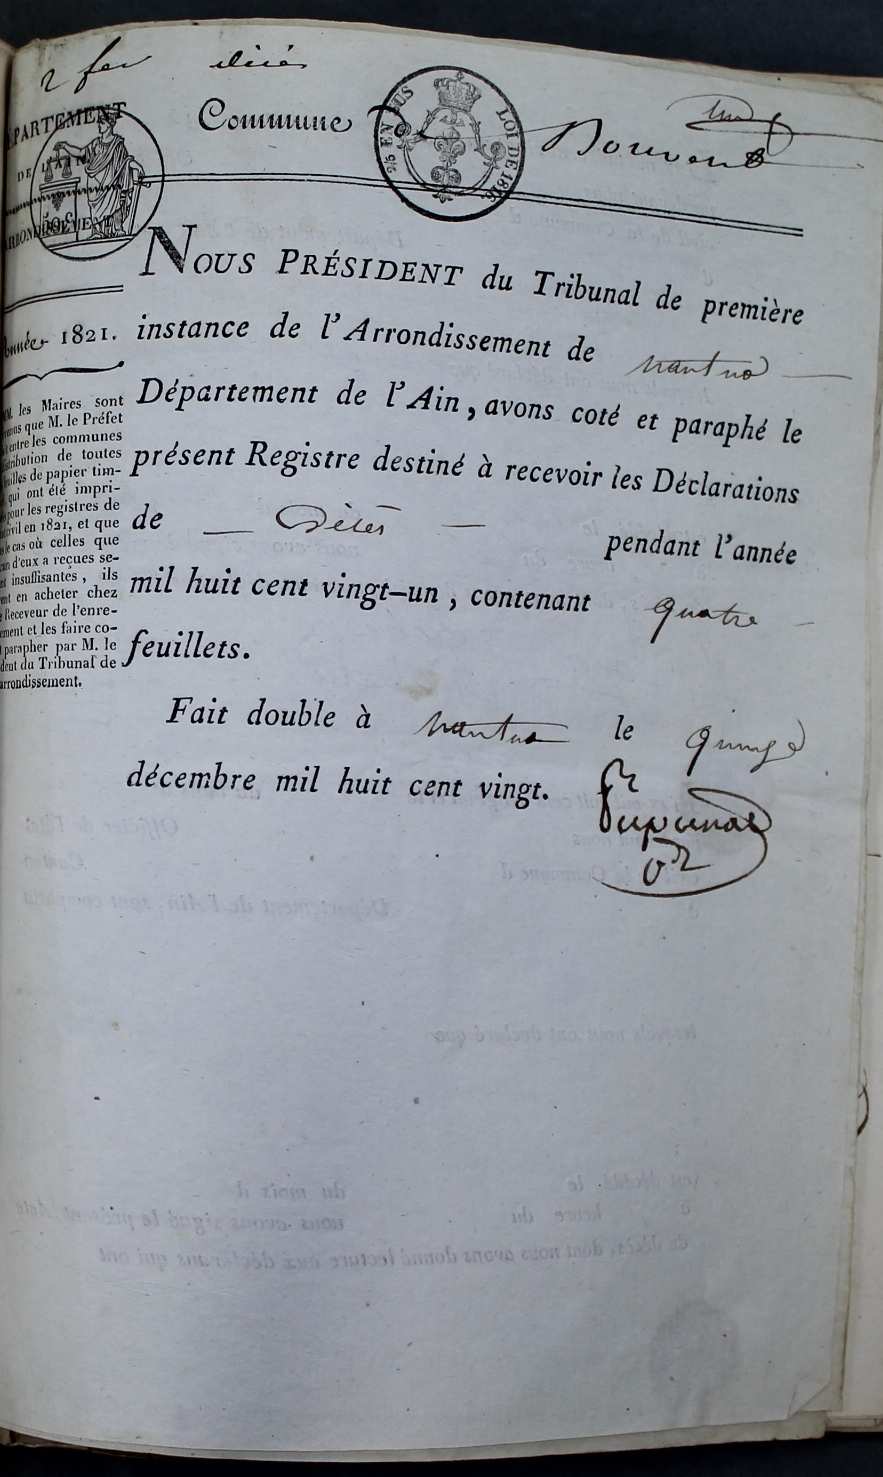 2 fer décès
DÉPARTEMENT
DE L'AIN
ARRONDISSEMENT
50c
Commune
25 EN SUS
LOI DE 1816
Bouvent
NOUS PRÉSIDENT du Tribunal de première
instance de l'Arrondissement de nantua
Département de l'Ain, avons coté et paraphé le
présent Registre destiné à recevoir les Déclarations
de Décès pendant l'année
mil huit cent vingt-un, contenant quatre
feuillets.
Fait double à nantua le quinze
décembre mil huit cent vingt.
Année 1821.
MM. les Maires sont
que M. le Préfet
entre les communes
distribution de toutes
feuilles de papier tim-
qui ont été impri-
pour les registres de
civil en 1821, et que
le cas où celles que
d'eux a reçues se-
insuffisantes, ils
en acheter chez
Receveur de l'enre-
et les faire co-
parapher par M. le
du Tribunal de
arrondissement.